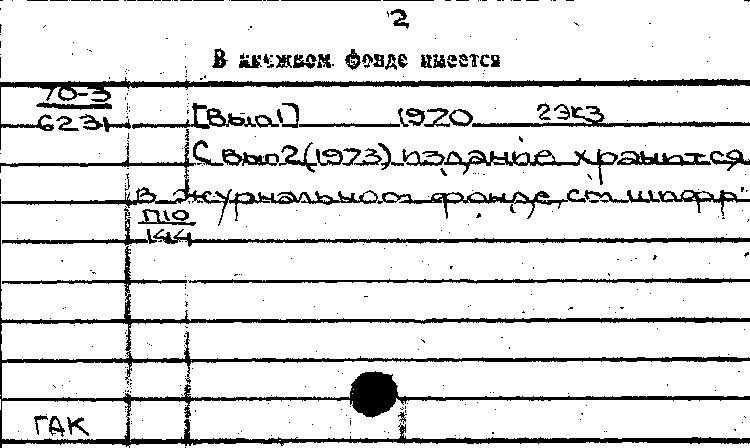 2
В книжном фонде имеется
70-3
6231 [Вып1] 1970 2экз
С вып2(1973) издание хранится
в журнальном фонде, см шифр:
П10
144
ГАК